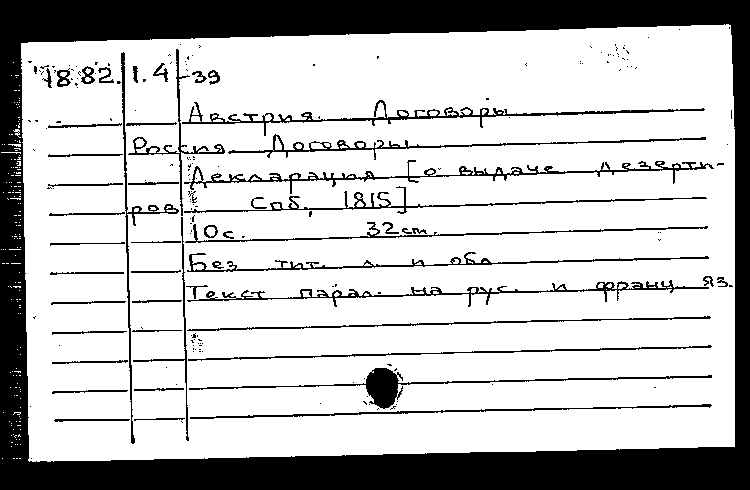 18.82. 1.4-39
Австрия. Договоры
Россия. Договоры.
Декларация [о выдаче дезерти-
ров Спб., 1815].
10с. 32см.
Без тит. л. и обл
Текст парал. на рус. и франц. яз.